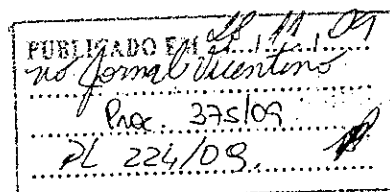 PUBLICADO EM 28/11/09
no Jornal Vicentino
Proc. 375/09
PL 224/09.